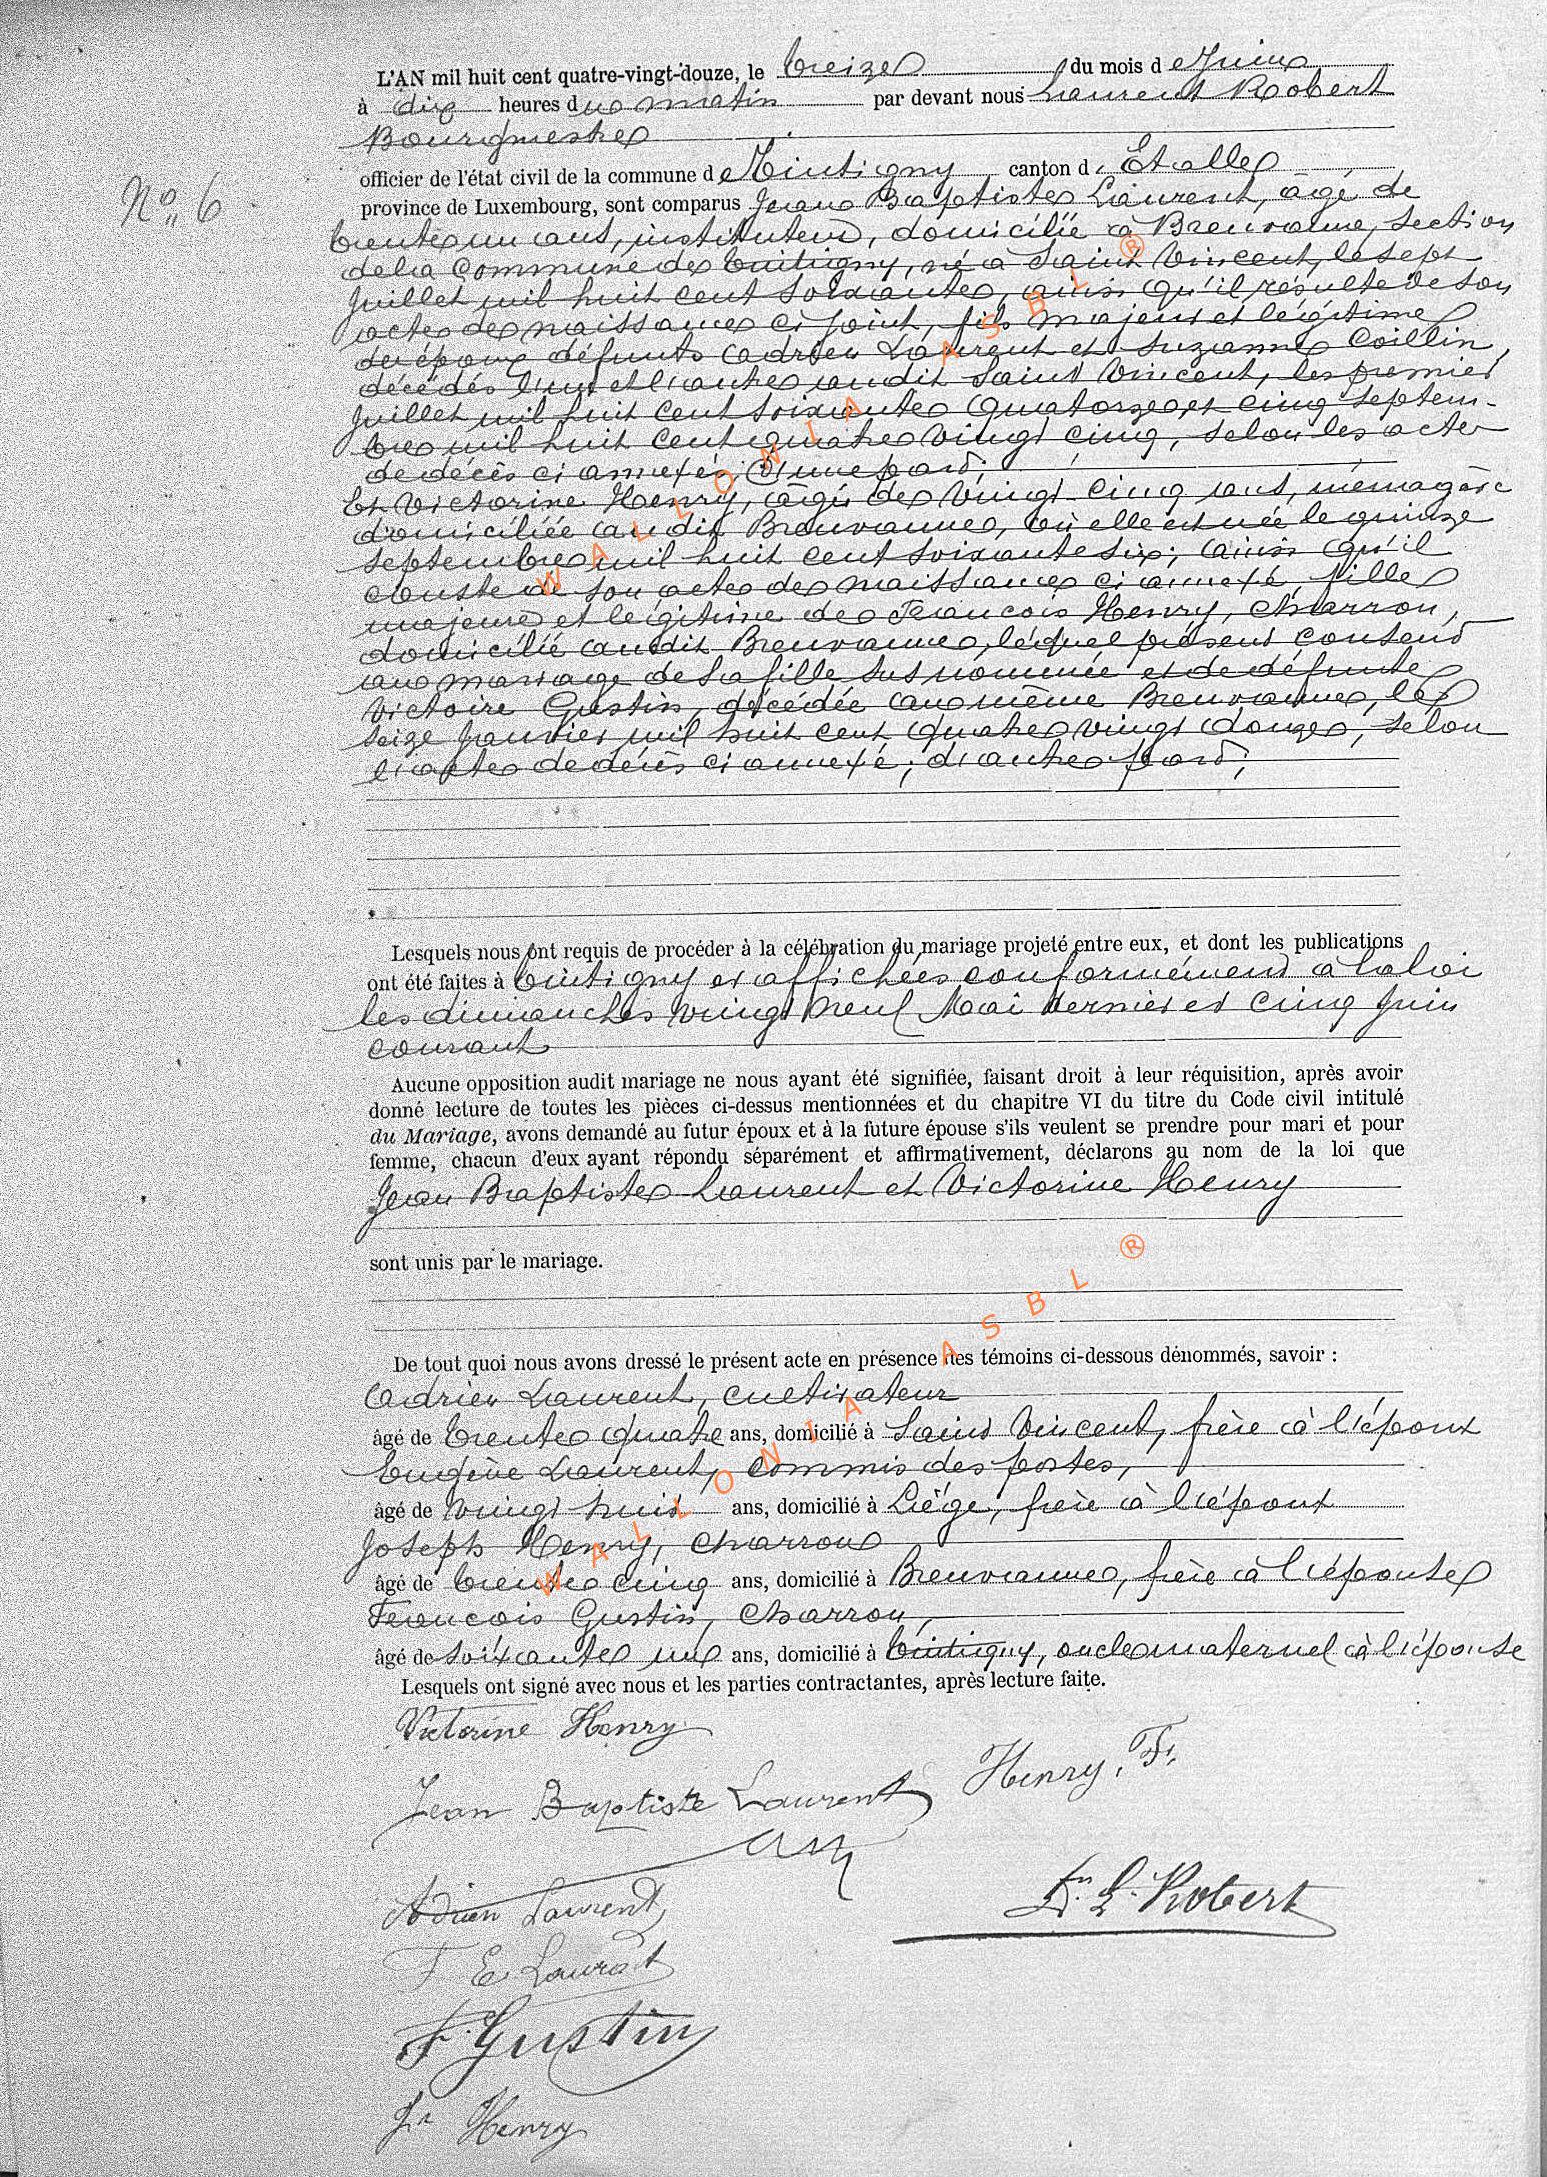 L'AN mil huit cent quatre-vingt-douze, le treize du mois de Juin
à dix heures du matin par devant nous Laurent Robert
Bourgmestre
officier de l'état civil de la commune de Tintigny canton d'Etalle
N° 6
province de Luxembourg, sont comparus Jean Baptiste Laurent, âgé de
trente un ans, instituteur, domicilié à Breuvanne, section
de la commune de Tintigny, né à Saint Vincent, le sept
Juillet mil huit cent soixante, ainsi qu'il résulte de son
acte de naissance ci joint, fils majeur et légitime
des époux défunts Adrien Laurent et Suzanne Coillin,
décédés l'un et l'autre audit Saint Vincent, les premier
Juillet mil huit cent soixante quatorze et cinq septem-
bre mil huit cent quatre vingt cinq, selon les actes
de décès ci annexés; d'une part;
Et Victorine Henry, âgée de vingt cinq ans, ménagère
domiciliée audit Breuvanne, où elle est née le quinze
septembre mil huit cent soixante six; ainsi qu'il
conste de son acte de naissance ci annexé, fille
majeure et légitime de François Henry, charron,
domicilié audit Breuvanne, lequel présent consent
au mariage de sa fille susnommée et de défunte
Victoire Gustin, décédée au même Breuvanne, le
seize Janvier mil huit cent quatre vingt douze, selon
l'acte de décès ci annexé; d'autre part;
Lesquels nous ont requis de procéder à la célébration du mariage projeté entre eux, et dont les publications
ont été faites à Tintigny et affichées conformément à la loi
les dimanches vingt neuf Mai dernier et cinq Juin
courant
Aucune opposition audit mariage ne nous ayant été signifiée, faisant droit à leur réquisition, après avoir
donné lecture de toutes les pièces ci-dessus mentionnées et du chapitre VI du titre du Code civil intitulé
du Mariage, avons demandé au futur époux et à la future épouse s'ils veulent se prendre pour mari et pour
femme, chacun d'eux ayant répondu séparément et affirmativement, déclarons au nom de la loi que
Jean Baptiste Laurent et Victorine Henry
sont unis par le mariage.
De tout quoi nous avons dressé le présent acte en présence des témoins ci-dessous dénommés, savoir :
Adrien Laurent, cultivateur
âgé de trente quatre ans, domicilié à Saint Vincent, frère à l'époux
Eugène Laurent, commis des postes,
âgé de vingt huit ans, domicilié à Liége, frère à l'époux
Joseph Henry, charron
âgé de trente cinq ans, domicilié à Breuvanne, frère à l'épouse
François Gustin, charron,
âgé de soixante un ans, domicilié à Tintigny, oncle maternel à l'épouse
Lesquels ont signé avec nous et les parties contractantes, après lecture faite.
Victorine Henry
Henry, F.
Jean Baptiste Laurent
Adrien Laurent
Dr. L. Robert
F E Laurent
F. Gustin
Jh Henry
WALLONIA ASBL ®
WALLONIA ASBL ®